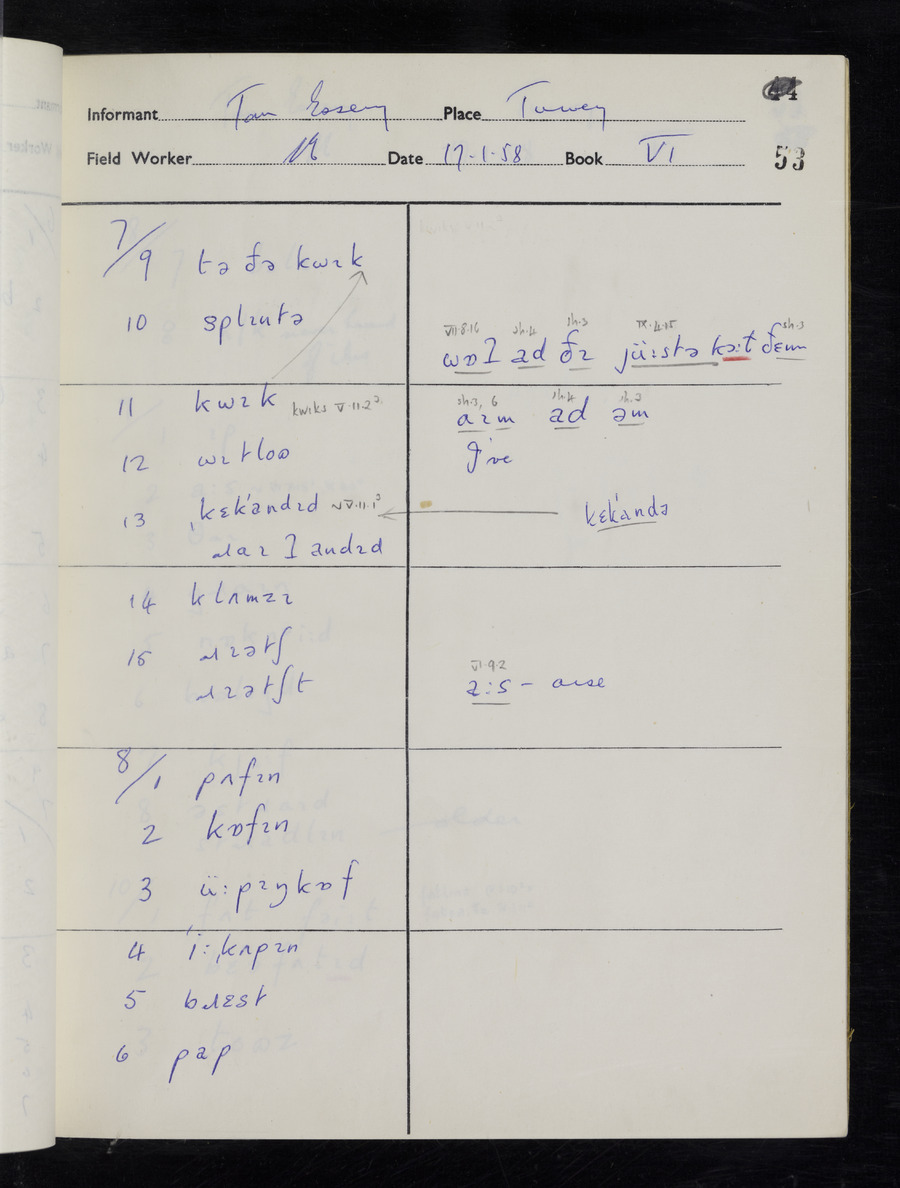 44
Informant Tom Place
Field Worker Date 17.1.58 Book VI
53
7/9 tə ðə kwɪk
10 splɪntə
VII·8·16 sh.4 sh.3 IX·4·15 sh.3
ad ðɪ kəːt ðɛm
11 kwɪk kwiks V·11·2
sh.3, 6 sh.4 sh.2
aɪm ad əm
12 wɪtloʊ
I've
13 ˌkɛkˈandɪd kɛkˈandə
andɪd
14 klʌmzɪ
15 ɹɪətʃ
ɹɪətʃt
VI·9·2
aːs – arse
8/1 pʌfɪn
2 kɒfɪn
3 üːpɪŋkɒf
4 ˈiːˌkʌpɪn
5 bɹɛst
6 pap